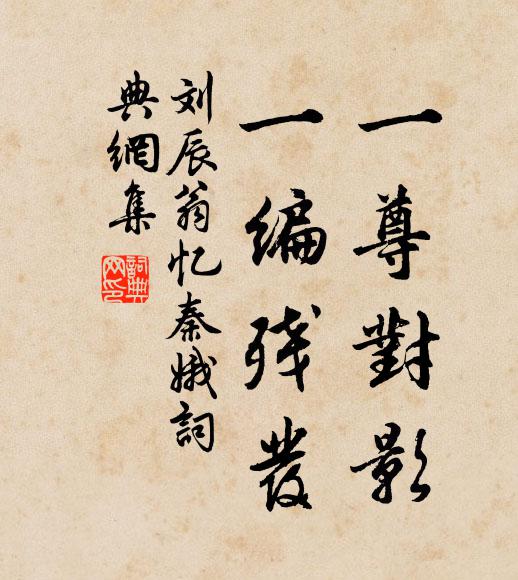 一尊對影
一編残發
刘辰翁忆秦娥詞
典網集
詞典网印